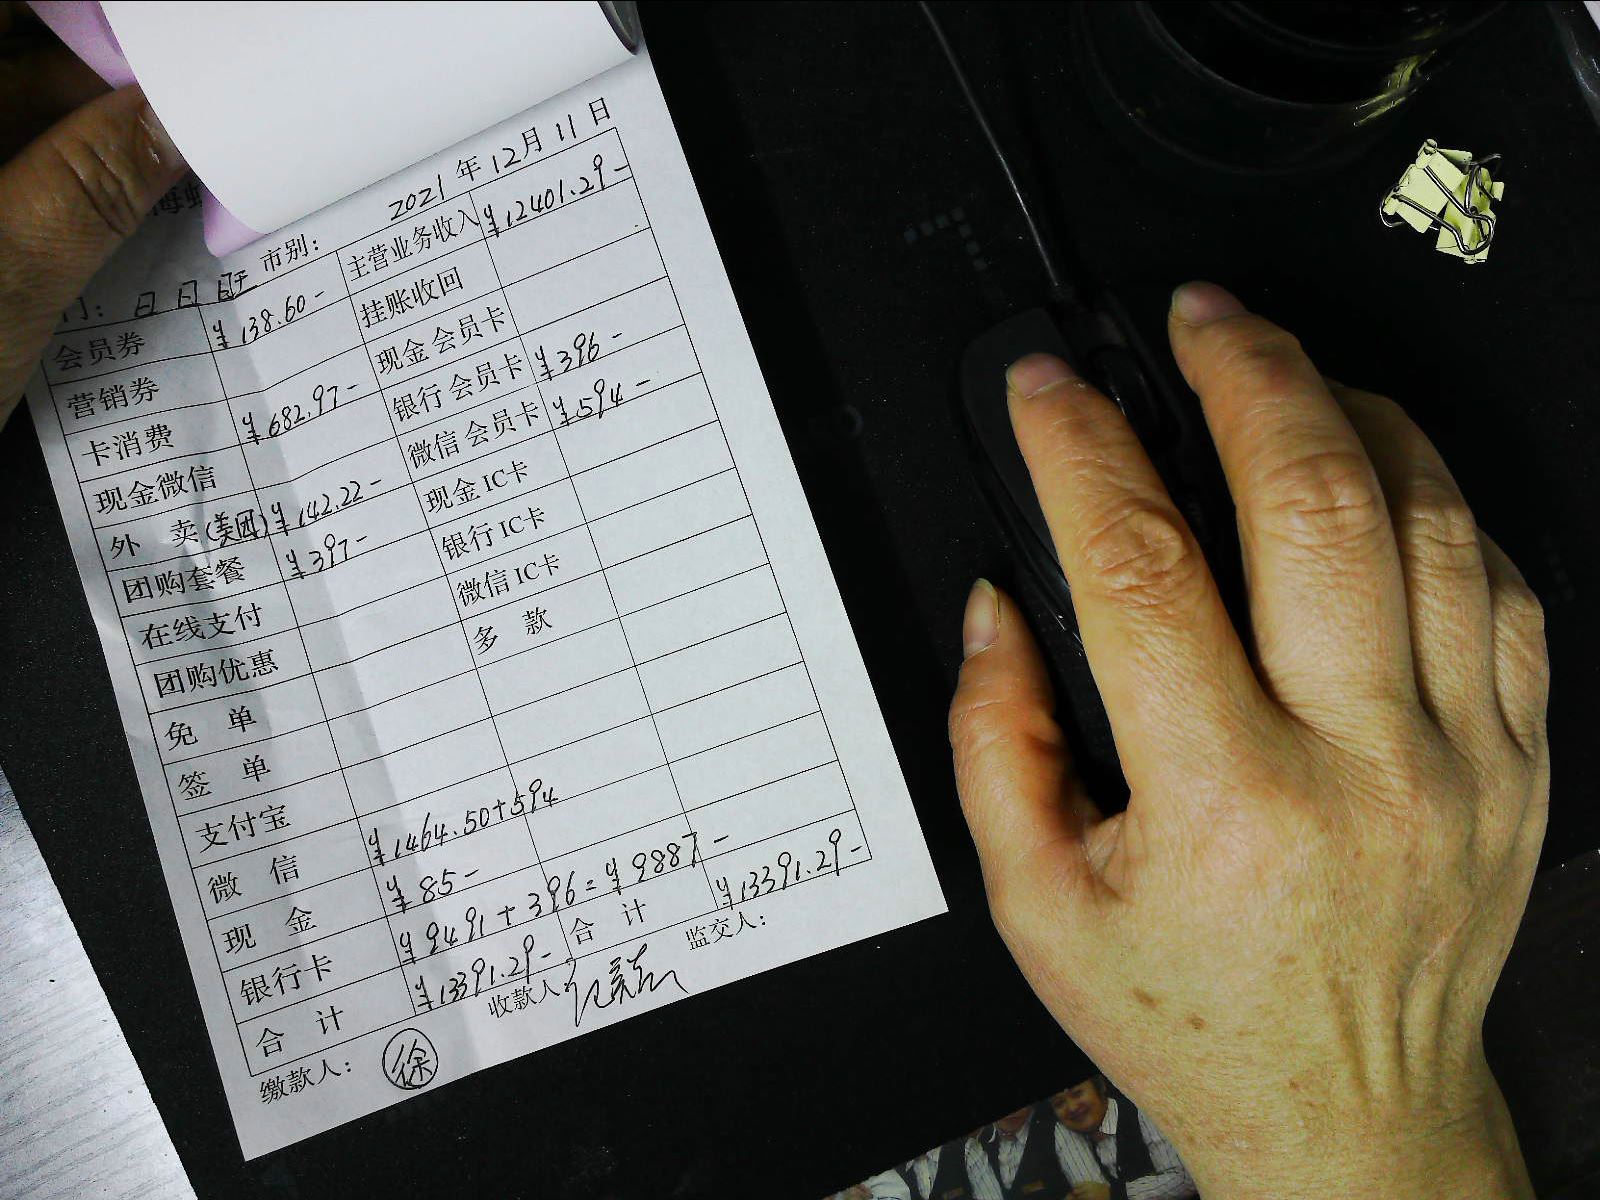 2021 年 12 月 11 日
门： 日 日 市别：
会员券 ¥138.60- 主营业务收入 ¥12401.29-
营销券 挂账收回
卡消费 ¥682.97- 现金会员卡
现金微信 银行会员卡 ¥396-
外 卖(美团) ¥142.22- 微信会员卡 ¥594-
团购套餐 ¥397- 现金IC卡
在线支付 银行IC卡
团购优惠 微信IC卡
免 单 多 款
签 单
支付宝
微 信 ¥1464.50+594
现 金 ¥85-
银行卡 ¥9491+396=¥9887-
合 计 ¥13391.29- 合 计 ¥13391.29-
缴款人： 徐 收款人： 监交人：